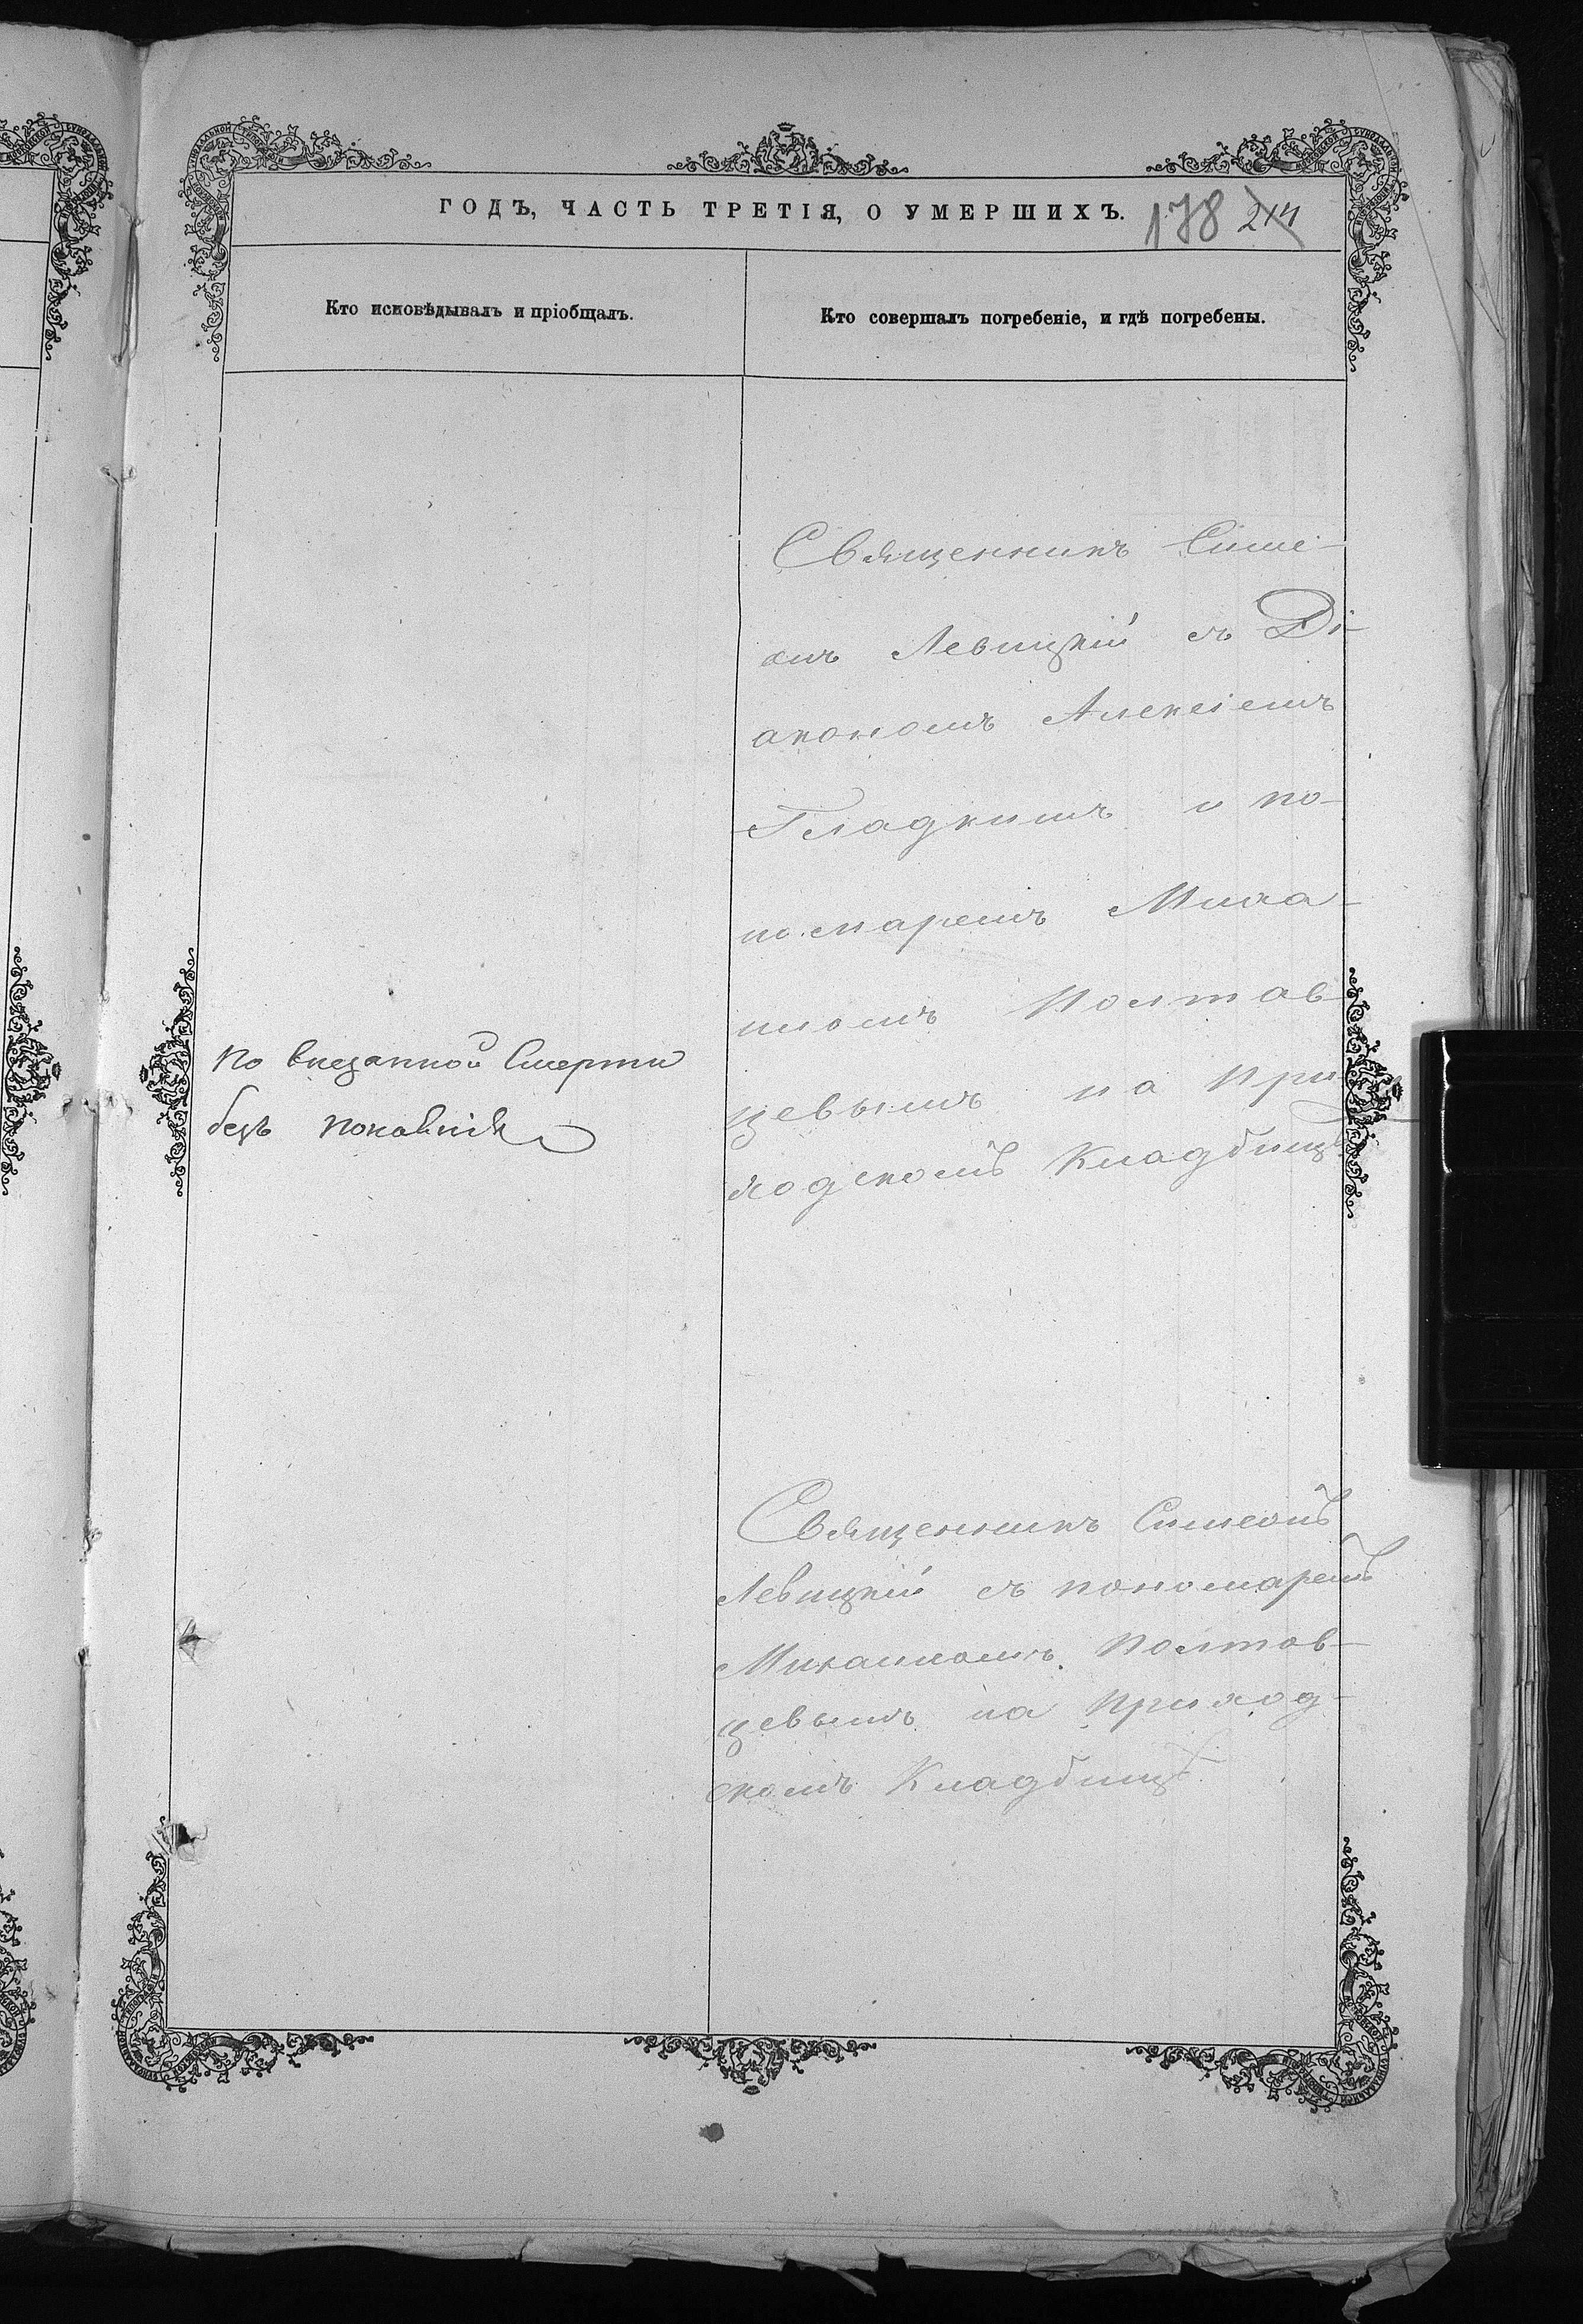 ГОДЪ, ЧАСТЬ ТРЕТІЯ, О УМЕРШИХЪ.
178 214
Кто исповѣдывалъ и пріобщалъ.
Кто совершалъ погребеніе, и гдѣ погребены.
По внезапной смерти
безъ покаянія
Священникъ Симе-
онъ Левицкій съ Ді-
акономъ Алексіемъ
Гладкимъ и по-
номаремъ Миха-
иломъ Полтав-
цевымъ на При
ходскомъ Кладбищѣ
Священникъ Симеонъ
Левицкій съ пономаремъ
Михаиломъ Полтав-
цевымъ на Приход-
скомъ Кладбищѣ